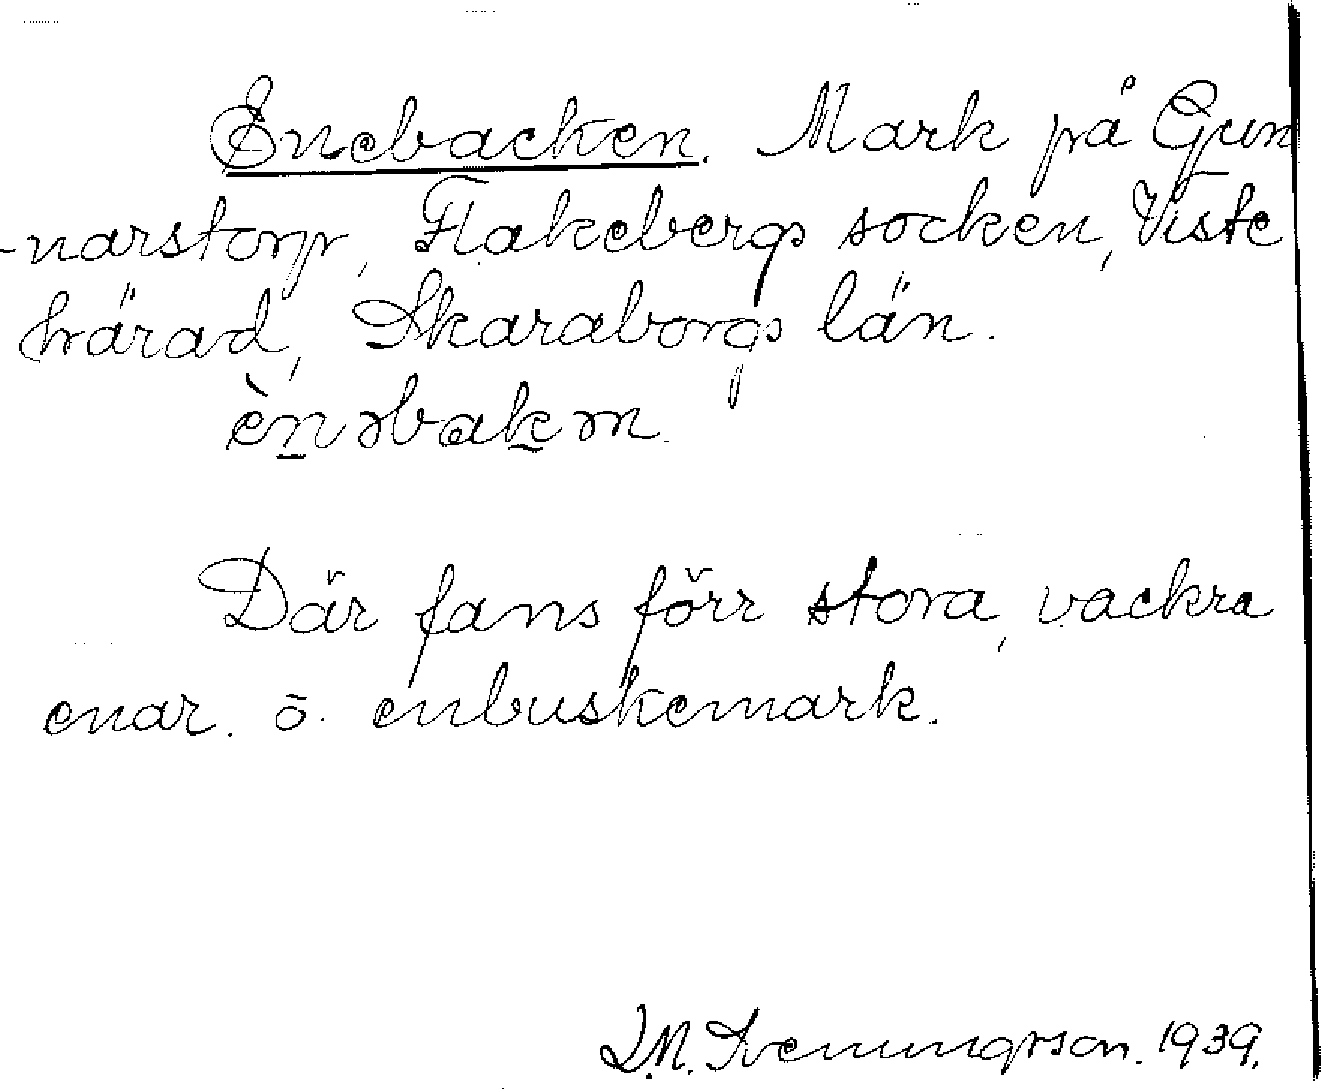 Enebacken. Mark på Gun
-narstorp, Flakebergs socken, Viste
härad, Skaraborgs län.
ènəbakən.
Där fans förr stora, vackra
enar. o. enbuskemark.
1939.